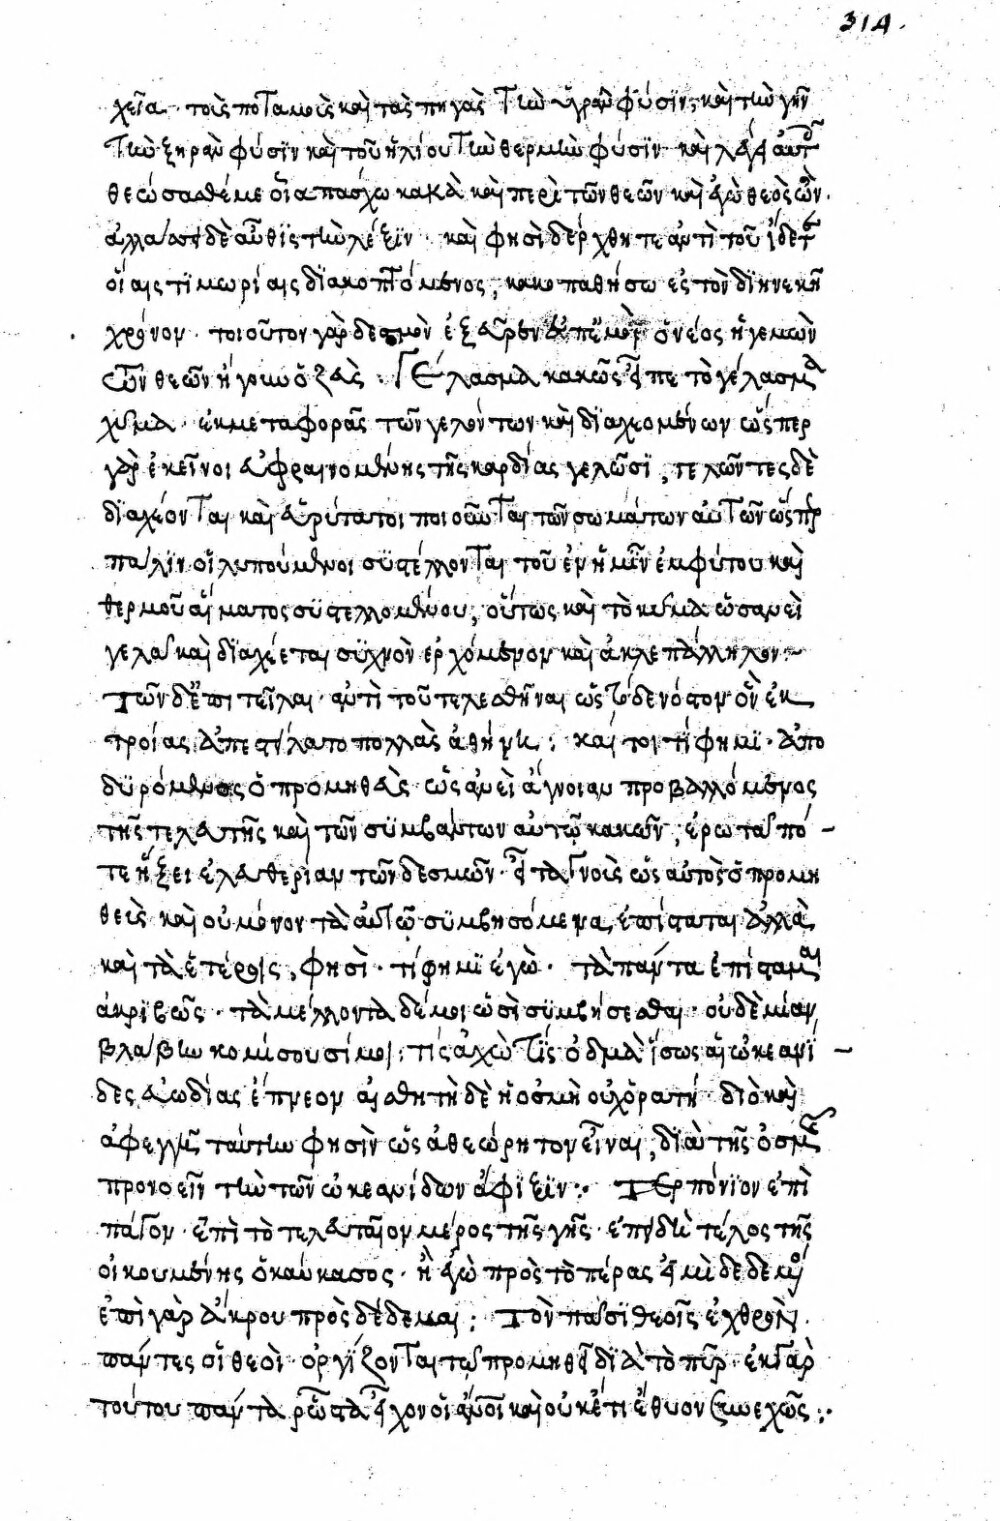 314.
χεῖα· τοὺς ποταμοὺς καὶ τὰς πηγὰς τὴν ὑγρὰν φύσϊν, καὶ τὴν γῆν
τὴν ξηρὰν φύσϊν καὶ τοῦ ἡλίου τὴν θερμὴν φύσϊν· καὶ
θεώσασθέ με οἷα πάσχω κακὰ καὶ περὶ τῶν θεῶν καὶ ἐγὼ θεὸς ὤν.
δὲ αὖθϊς τὴν λέξϊν· καὶ φησὶ δέρχθητε ἀντὶ τοῦ ἴδετε
οἵαις τϊμωρίαις δϊακοπτόμενος, κακοπαθήσω ἐς τὸν δϊηνεκῆ
χρόνον· τοιοῦτον γὰρ δεσμὸν ἐξεῦρεν ἐπ' ἐμὲ ὁ νέος ἡγεμὼν
τῶν θεῶν ἤγουν ὁ ζεύς· Γέλασμα κακῶς εἶπε τὸ γέλασμα
κῦμα· ἐκ μεταφορᾶς τῶν γελόντων καὶ δϊαχεομένων ὥσπερ
γὰρ ἐκεῖνοι εὐφραινομένης τῆς καρδίας γελῶσϊ, γελῶντες δὲ
δϊαχέονται καὶ εὐρύτατοι ποιοῦνται τῶν σωμάτων αὐτῶν ὥσπερ
πάλϊν οἱ λυπούμενοι συστέλλονται τοῦ ἐν ἡμῖν ἐμφύτου καὶ
θερμοῦ αἵματος συστελλομένου, οὕτως καὶ τὸ κῦμα ὡσανεὶ
γελᾶ καὶ δϊαχέεται συχνὸν ἐρχόμενον καὶ ἀκλεπάλληλον:~
Τῶνδ' ἐπιτεῖλαι· ἀντὶ τοῦ τελεσθῆναι ὡς τόδε νόστον ὃν ἐκ
τροίας ἐπετείλατο παλλὰς ἀθήνη: καί τοι τί φημϊ· ἀπο
δϋρόμενος ὁ προμηθεὺς ὡς ἀνεὶ ἄγνοιαν προβαλλόμενος
τῆς τελευτῆς καὶ τῶν συμβάντων αὐτῷ κακῶν, ἐρωτᾶ πό-
τε ἥξει ἐλευθερίαν τῶν δεσμῶν· εἶτα γνοὺς ὡς αὐτὸς ὁ προμη
θεὺς καὶ οὐ μόνον τὰ αὐτῶ συμβησόμενα, ἐπίσταται ἀλλὰ
καὶ τὰ ἑτέροις, φησὶ· τί φημϊ ἐγὼ· τὰ πάντα ἐπίσταμαι
ἀκρϊβῶς· τὰ μέλλοντα δέ μοι ὡσὶ συμβήσεσθαι· οὐδεμίαν
βλάβην κομίσουσί μοι: τίς ἀχὼ τίς ὀδμὰ ἴσως αἱ ὠκεανϊ-
δες εὐωδίας ἔπνεον αἰσθητὴ δὲ ἡ ὀσμὴ οὐχ ὁρατή· διὸ καὶ
ἀφεγγῆ ταύτην φησὶν ὡς ἀθεώρητον εἶναι, δϊὰ τῆς ὀσμῆς
προνοεῖν τὴν τῶν ὠκεανίδων ἄφϊξϊν: Τερπόνϊον ἐπὶ
πάγον· ἐπὶ τὸ τελευταῖον μέρος τῆς γῆς· ἐπειδὴ τέλος τῆς
οἰκουμένης ὁ καύκασος· ἢ ἐγὼ πρὸς τὸ πέρας εἰμὶ δεδεμένος
ἐπὶ γὰρ ἄκρου προσδέδεμαι: Τὸν πᾶσϊ θεοῖς ἐχθρὸν·
πάντες οἱ θεοὶ ὀργίζονται τῷ προμηθεῖ δϊὰ τὸ πῦρ· ἐκ γὰρ
τούτου πάντα ῥᾷστα εἶχον οἱ ἄνθρωποι καὶ οὐκέτι ἔθυον συνεχῶς:·